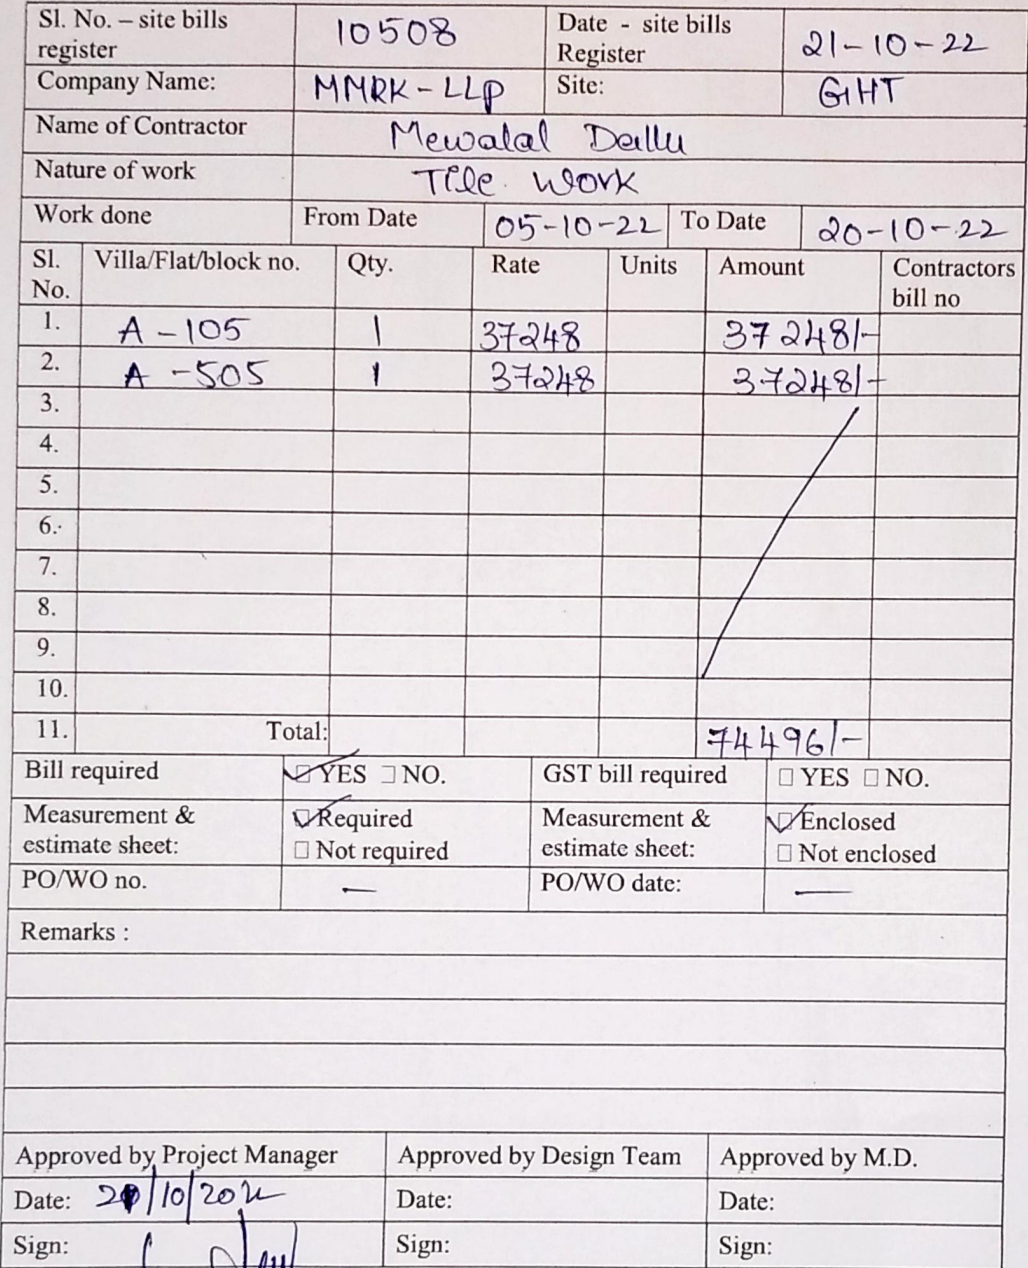 Sl. No. – site bills register 10508 Date - site bills Register 21-10-22
Company Name: MMRK-LLP Site: GHT
Name of Contractor Mewalal Dallu
Nature of work Tile work
Work done From Date 05-10-22 To Date 20-10-22
Sl. No. Villa/Flat/block no. Qty. Rate Units Amount Contractors bill no
1. A-105 1 37248 37248/-
2. A-505 1 37248 37248/-
3.
4.
5.
6.
7.
8.
9.
10.
11. Total: 74496/-
Bill required ☑ YES ☐ NO. GST bill required ☐ YES ☐ NO.
Measurement & estimate sheet: ☑ Required ☐ Not required Measurement & estimate sheet: ☑ Enclosed ☐ Not enclosed
PO/WO no. — PO/WO date: —
Remarks :
Approved by Project Manager Approved by Design Team Approved by M.D.
Date: 21/10/2022 Date: Date:
Sign: Sign: Sign: